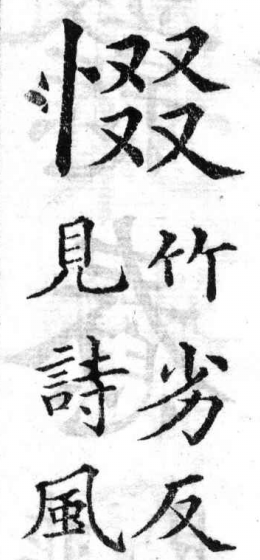 惙
竹劣反
見詩風